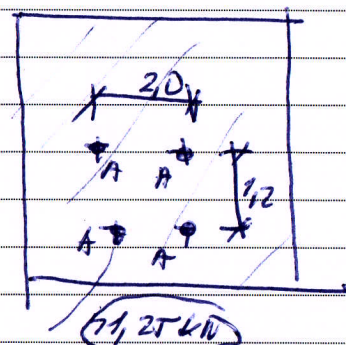 2,0
A A
1,2
A A
51,25 kN